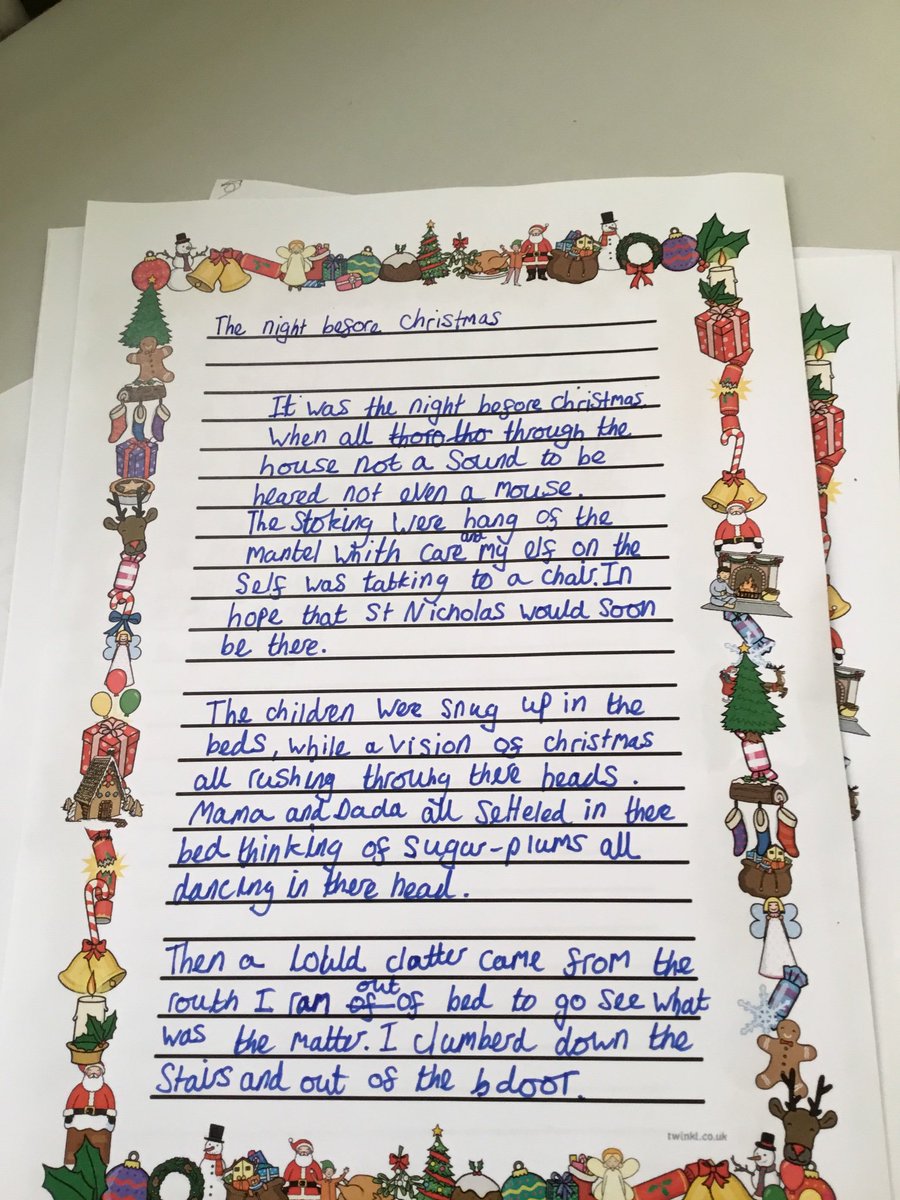 The night before Christmas
It was the night before christmas
When all thoro tho through the
house not a Sound to be
heared not even a mouse.
The Stoking were hang of the
Mantel whith care and my elf on the
Self was talking to a chair. In
hope that St Nicholas would Soon
be there.
The children were snug up in the
beds, while a vision of christmas
all rushing throuhg there heads.
Mama and Dada all Setteled in there
bed thinking of Sugar-plums all
dancing in there head.
Then a Lould clatter came from the
routh I ran of out of bed to go see what
was the matter. I clumberd down the
Stairs and out of the b door.
twinkl.co.uk